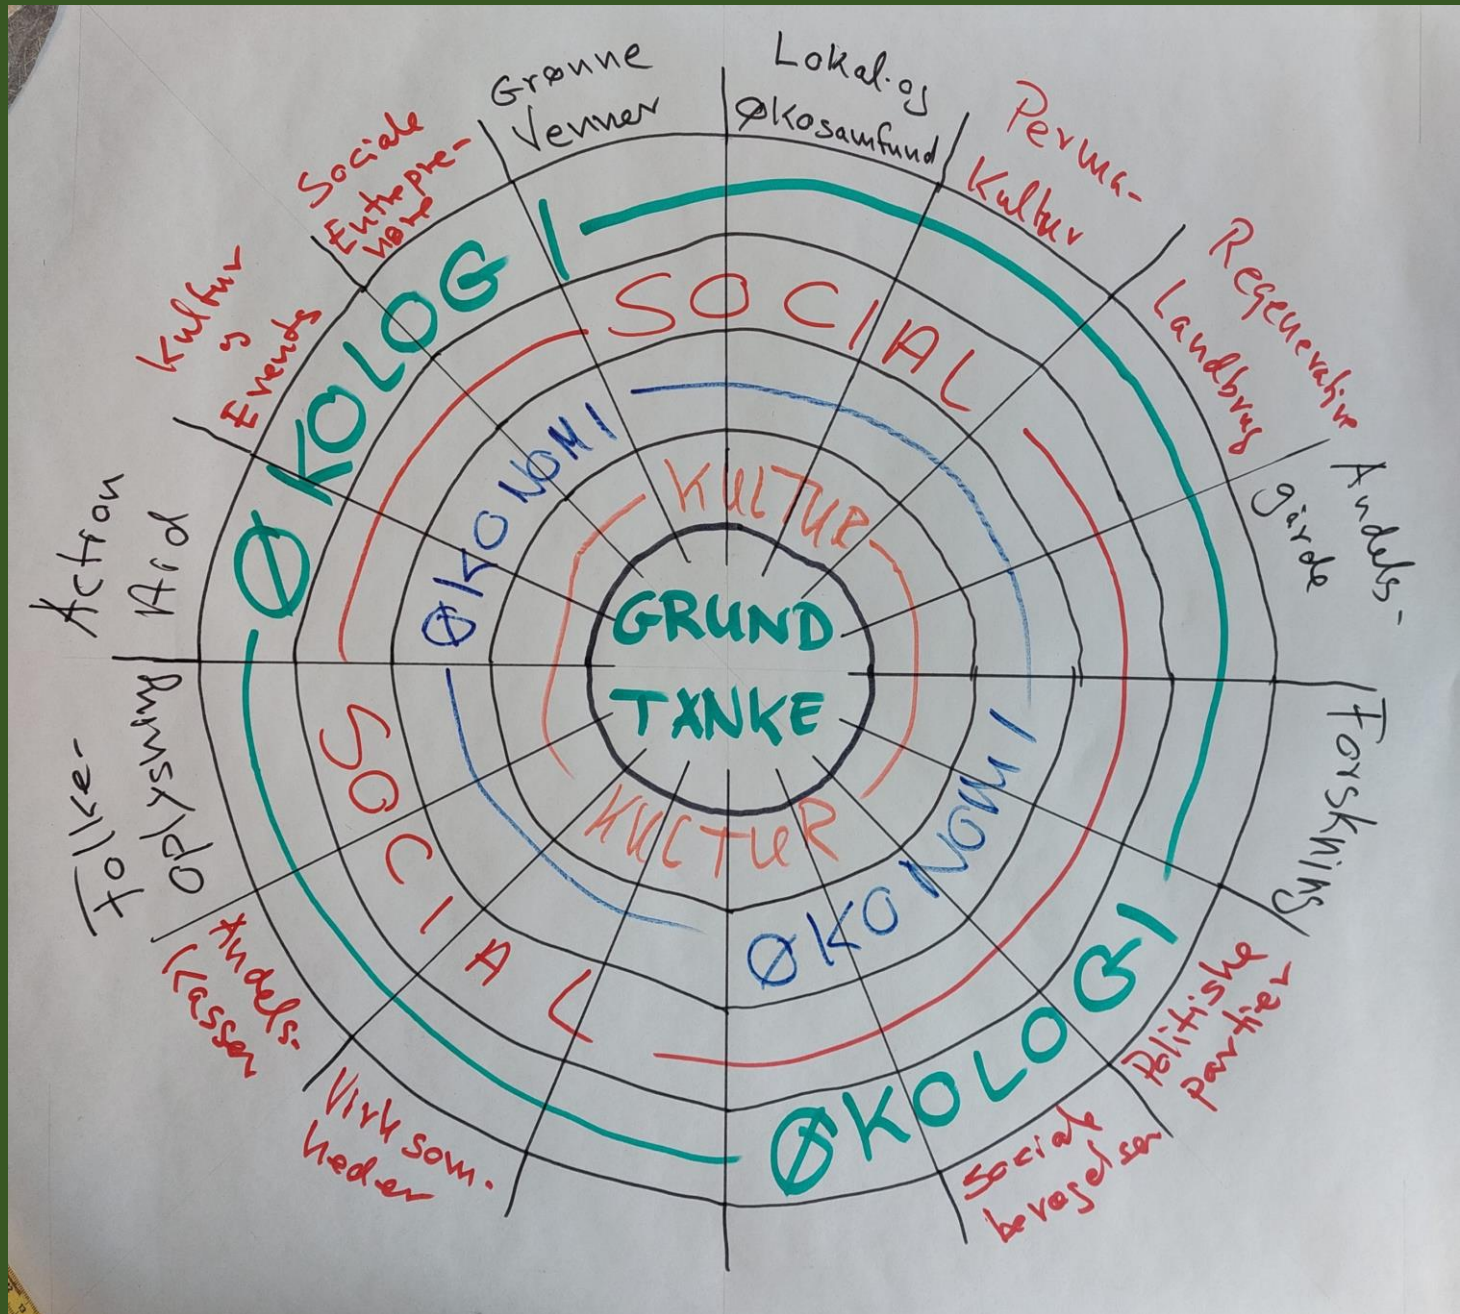 Grønne
Venner
Lokal- og
Økosamfund
Perma-
Kultur
Regenerative
Landbrug
Andels-
gårde
Forskning
Politiske
partier
Sociale
bevægelser
Virksom-
heder
Andels-
Kasser
Folke-
oplysning
Action
Aid
Kultur
og
Events
Sociale
Entrepre-
nøre
ØKOLOGI
SOCIAL
ØKONOMI
KULTUR
GRUND
TÆNKE
KULTUR
ØKONOMI
SOCIAL
ØKOLOGI